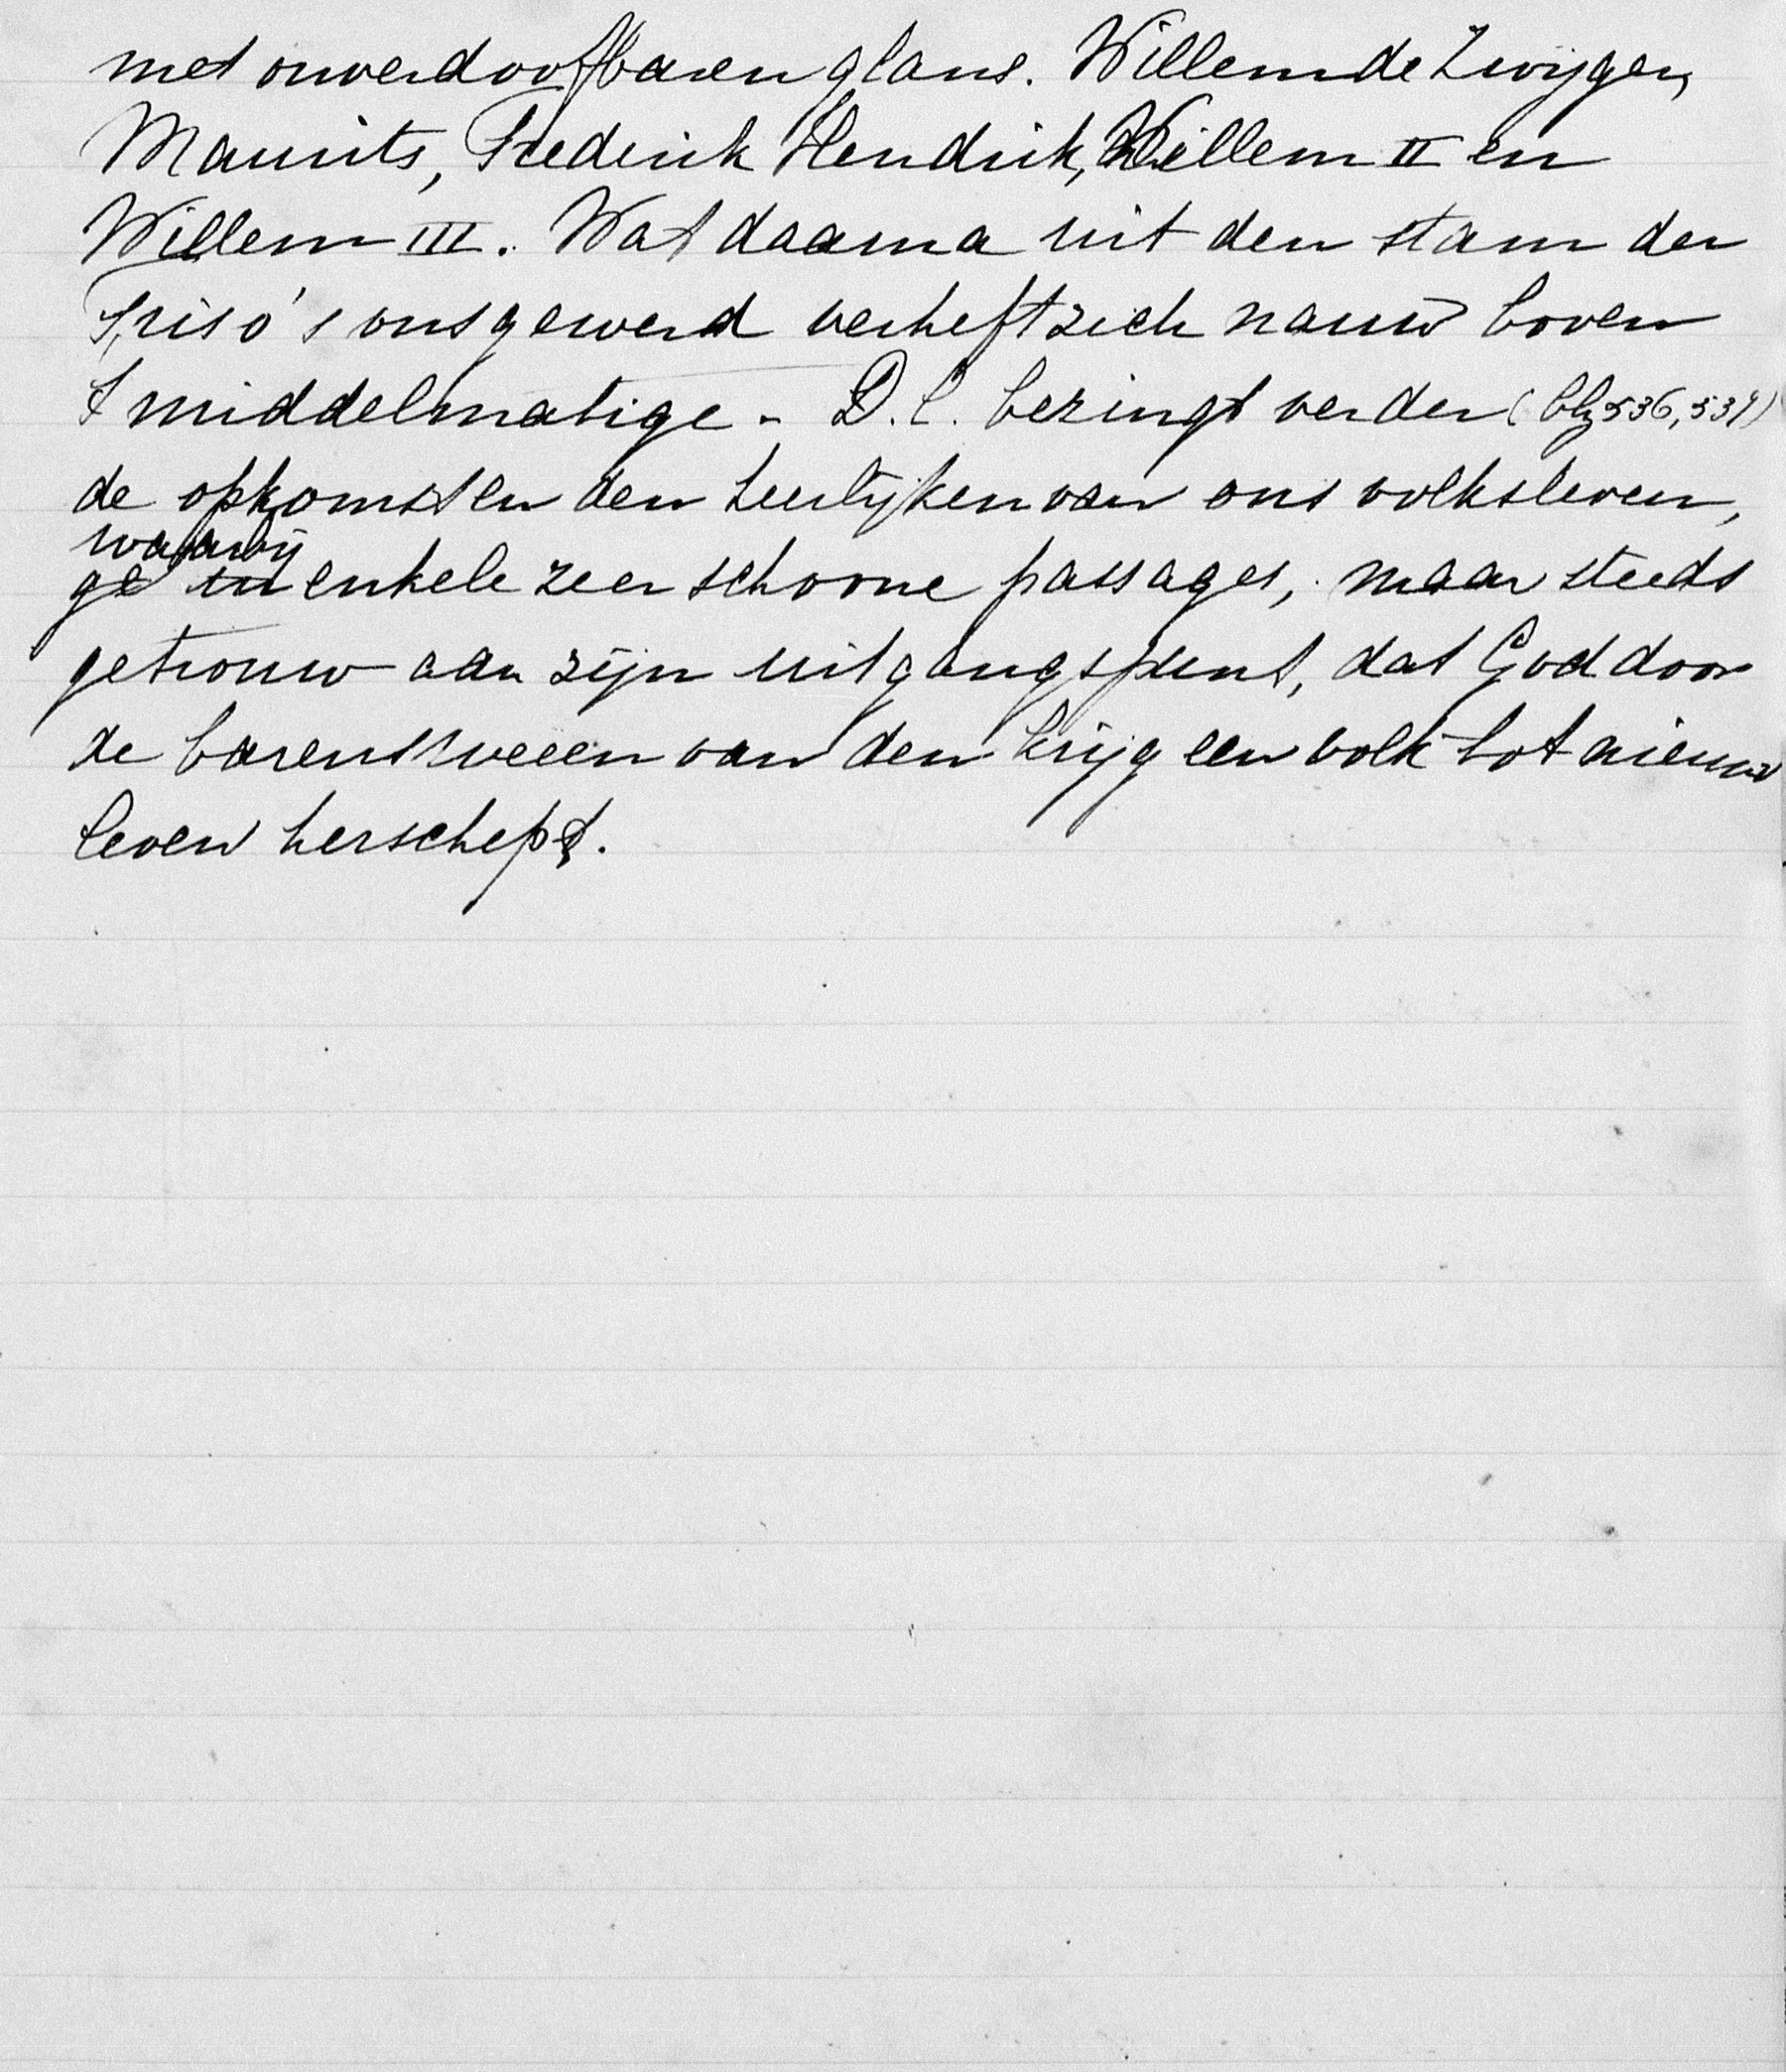 met onverdoofbaren glans. Willem de Zwijger,
Maurits, Frederik Hendrik, Willem II en
Willem III. Wat daarna uit den stam der
Friso's ons gewerd verheft zich nauw boven
t middelmatige - D.C. bezingt verder (blz 536, 537)
de opkomst en den heerlijken van ons volksleven,
waarbij
ge in enkele zeer schoone passages, maar steeds
getrouw aan zijn uitgangspunt, dat God door
de barensweeen van den krijg een volk tot nieuw
leven herschept.